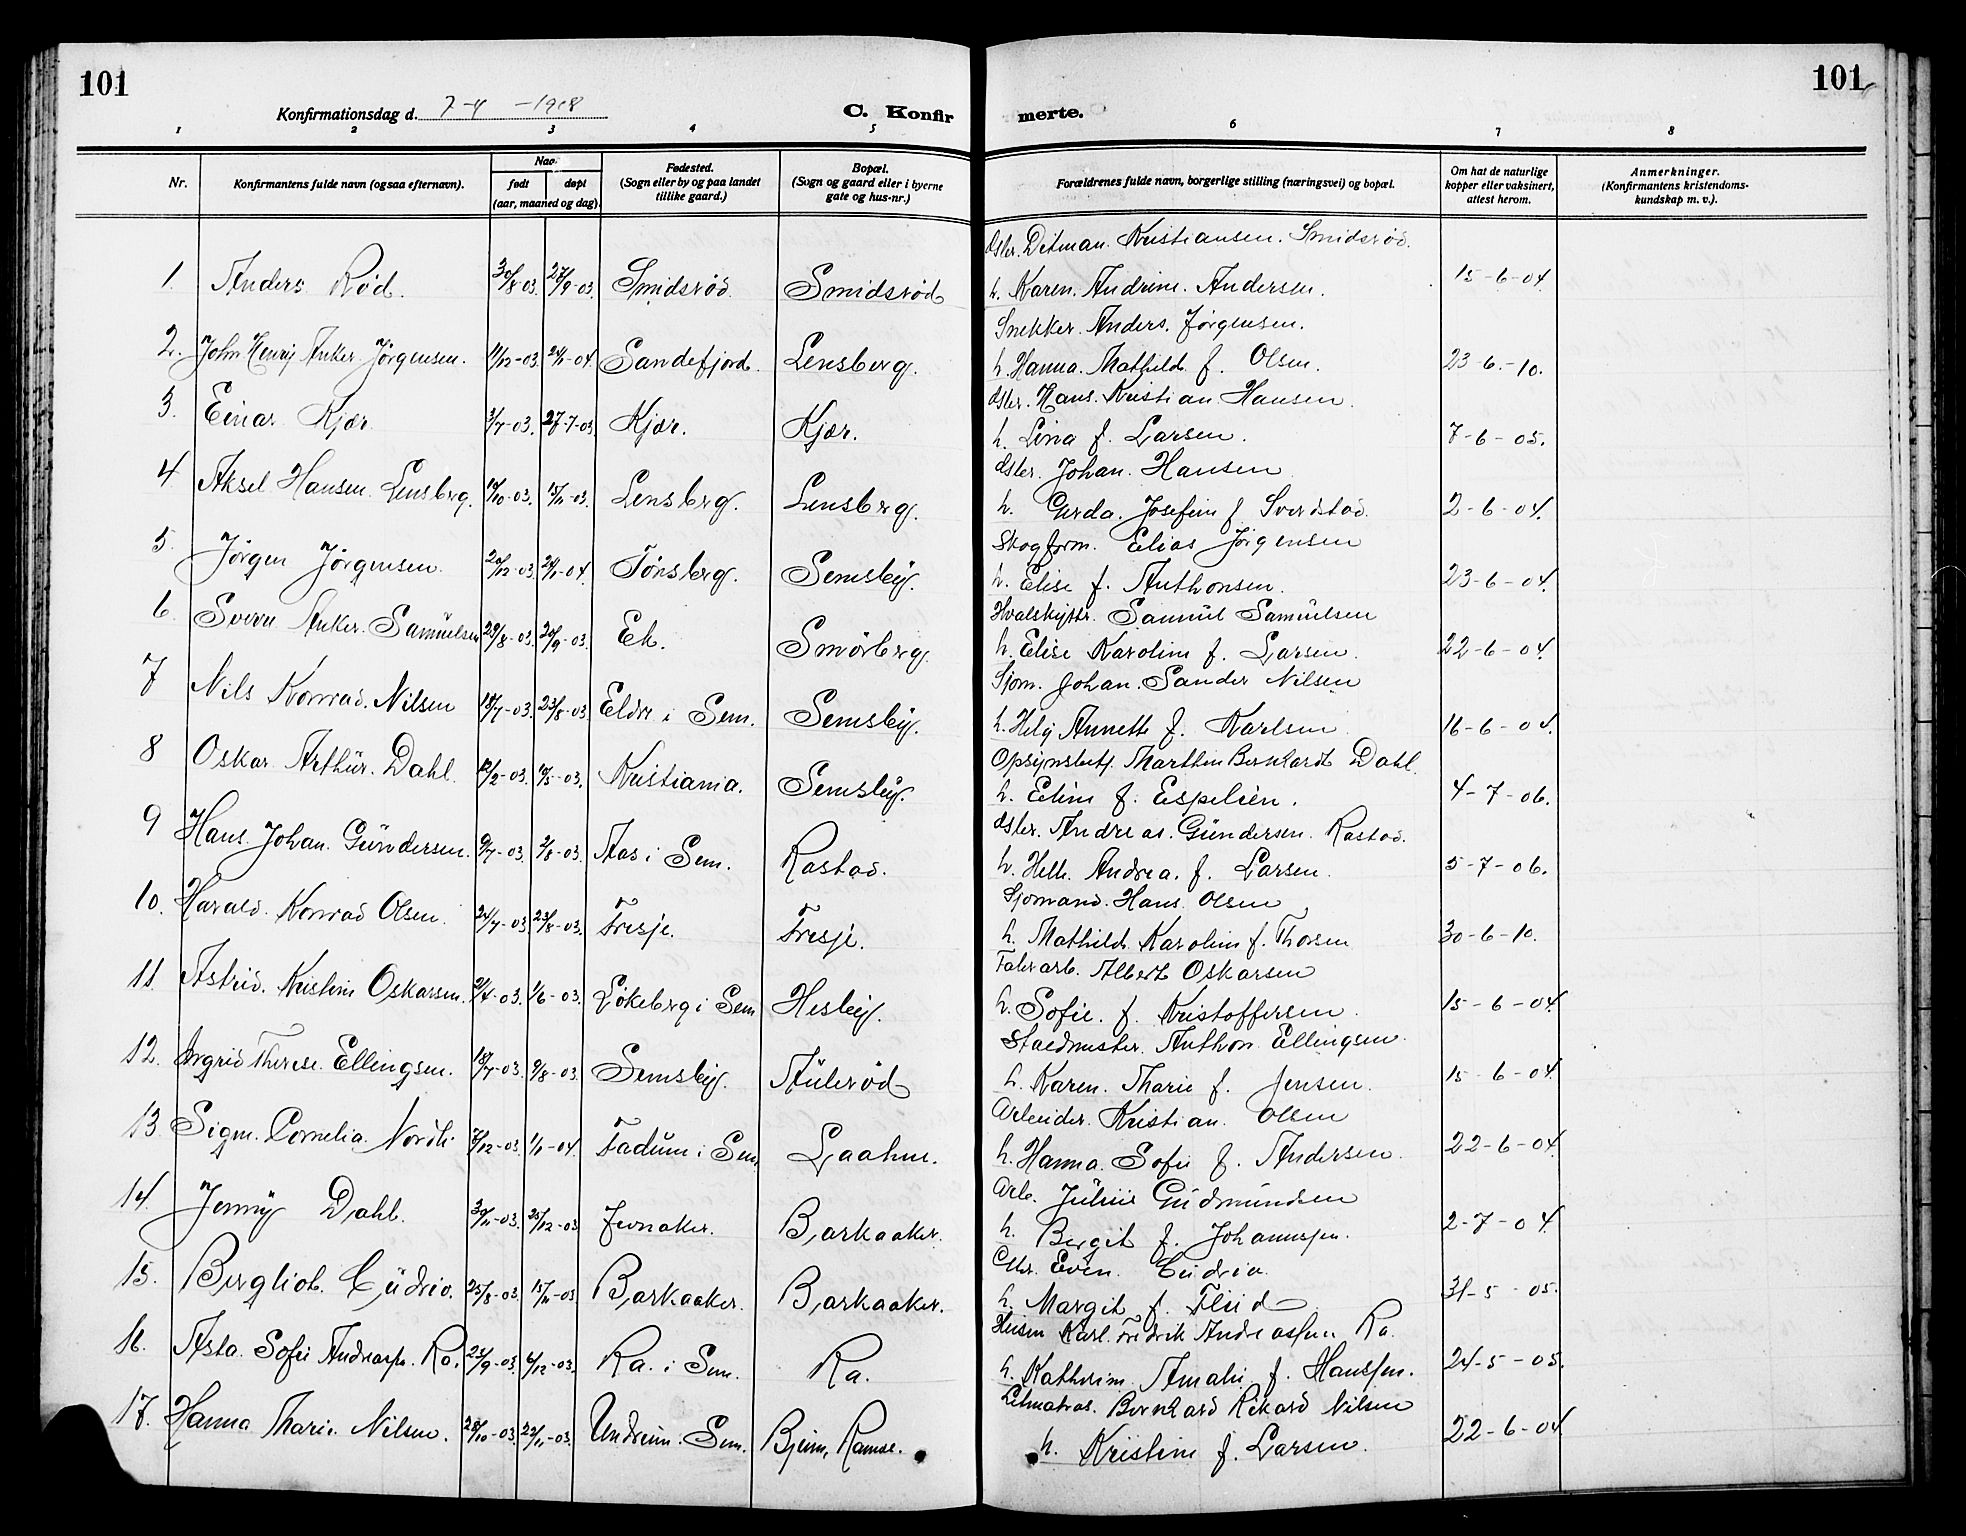 101
101
Konfirmationsdag d. 7-4 -1918
C. Konfir
merte.
1 2 3 4 5 6 7 8
Nr.
Konfirmantens fulde navn (ogsaa efternavn).
Naar
født døpt
(aar, maaned og dag).
Fødested.
(Sogn eller by og paa landet
tillike gaard.)
Bopæl.
(Sogn og gaard eller i byerne
gate og hus-nr.)
Forældrenes fulde navn, borgerlige stilling (næringsvei) og bopæl.
Om hat de naturlige
kopper eller vaksinert,
attest herom.
Anmerkninger.
(Konfirmantens kristendoms-
kundskap m. v.).
Ditman Kristiansen. Smidsrød.
1. Anders Rød. 30/8-03. 27/9-03. Smidsrød. Smidsrød h. Karen Andrine Andersen. 15-6-04.
Snekker. Anders. Jørgensen.
2. John Henry Anker Jørgensen. 11/12-03. 24/1-04. Sandefjord. Lensberg. h. Hanna. Mathild. f. Olsen. 23-6.-10.
Hans Kristian Hansen.
3. Einar Kjær 3/7-03. 27-7-03. Kjær. Kjær. h. Lina f. Larsen. 7-6-05.
Johan Hansen
4 Aksel Hansen Lensberg. 14/10-03. 15/11-03. Lensberg. Lensberg. h. Gerda. Josefine f 2-6-04.
Skogform. Elias Jørgensen
5. Jørgen Jørgensen. 20/12-03. 24/1-04. Tønsberg. Semsbÿ. h. Elise f. Anthonsen. 23-6-04.
Samuel Samüelsen
6. Sverre Anker. Samüelsen 29/8-03. 20/9-03. Ek. Smørberg. h. Elise Karoline f. Larsen. 22-6-04.
Sjøm. Johan. Sander Nilsen
7 Nils Konrad. Nilsen 18/7-03. 23/8-03. Eldre i Sem. Semsbÿ. h. Helg Annette f. Karlsen. 16-6-04.
Marthin Bernhardt Dahl.
8 Oskar Arthür. Dahl. 12/2-03. 10/5-03. Kristiania. Semsbÿ. h. Eline f. Espelien. 4-7-06.
Andreas. Gündersen. Rastad.
9 Hans Johan. Gündersen. 9/7-03. 2/8-03. Aas i Sem. Rastad. h. Helle Andrea. f. Larsen. 5-7-06.
Sjømand. Hans. Olsen
10. Harald. Konrad Olsen. 24/7-03. 23/8-03. Fresje. Fresje. h. Mathilde Karoline f. Thorsen 30-6-10.
Albert Oskarsen
11. Astrid. Kristine Oskarsen. 21/4-03. 1/6-03. Løkeberg i Sem Hesbÿ. h. Sofie. f. Kristoffersen. 15-6-04.
Staldmester. Anthon Ellingsen.
12. Ingrid Therese Ellingsen. 18/7-03. 9/8-03. Semsbÿ. Aülerød h. Karen. Marie f. Jensen. 15-6-04.
Arbeider. Kristian. Olsen
13. Signe. Cornelia. Nordli 7/12-03. 1/1-04. Fadum i Sem Laahne. h. Hanna. Sofie f. Andersen. 22-6-04.
Arb. Jülius Güdmündsen
14. Jenny Dahl. 30/11-03. 25/12-03 Jevnaker. Barkaaker. h. Bergit f. Johannssen. 2-7-04.
Even. Gudrio.
15. Bergliot. Güdrio. 25/8-03. 15/11-03 Barkaaker. Barkaaker. h. Margit f. 31-5-05.
Karl. Fredrik Andreassen Ra.
16. Asta. Sofie Andreass. Ra. 23/9-03. 6/12-03. Ra. i Sem. Ra. h. Kathrine Amalie f. Hanssen. 24-5-05.
Bernhard Rikard Nilsen
17. Hanna Marie Nilsen. 28/10-03. 22/11-03. Undrum. Sem. Bjerm, h. Kristine f. Larsen. 22-6-04